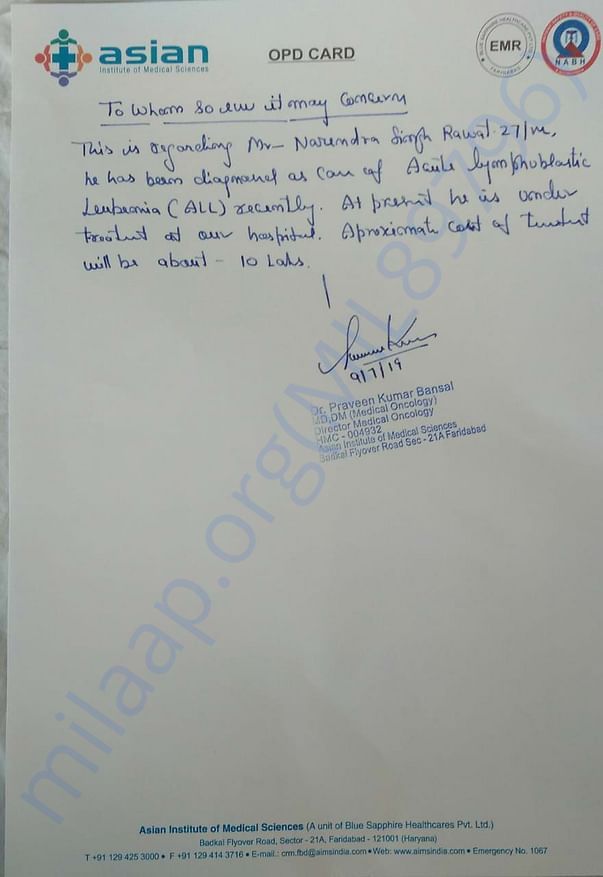 asian
Institute of Medical Sciences
OPD CARD
BLUE SAPPHIRE HEALTHCARES PVT LTD
EMR
FARIDABAD
NABH
To whom so ever it may concern
This is regarding Mr- Narendra Singh Rawat 27/m,
he has been diagnosed as case of Acute lymphoblastic
Leukemia (ALL) recently. At present he is under
treatment at our hospital. Aproximate cost of treatment
will be about - 10 Lakhs.
9/7/19
Dr. Praveen Kumar Bansal
MD,DM (Medical Oncology)
Director Medical Oncology
HMC - 004932
Asian Institute of Medical Sciences
Badkal Flyover Road Sec - 21A Faridabad
Asian Institute of Medical Sciences (A unit of Blue Sapphire Healthcares Pvt. Ltd.)
Badkal Flyover Road, Sector - 21A, Faridabad - 121001 (Haryana)
T +91 129 425 3000 • F +91 129 414 3716 • E-mail.: crm.fbd@aimsindia.com • Web: www.aimsindia.com • Emergency No. 1067